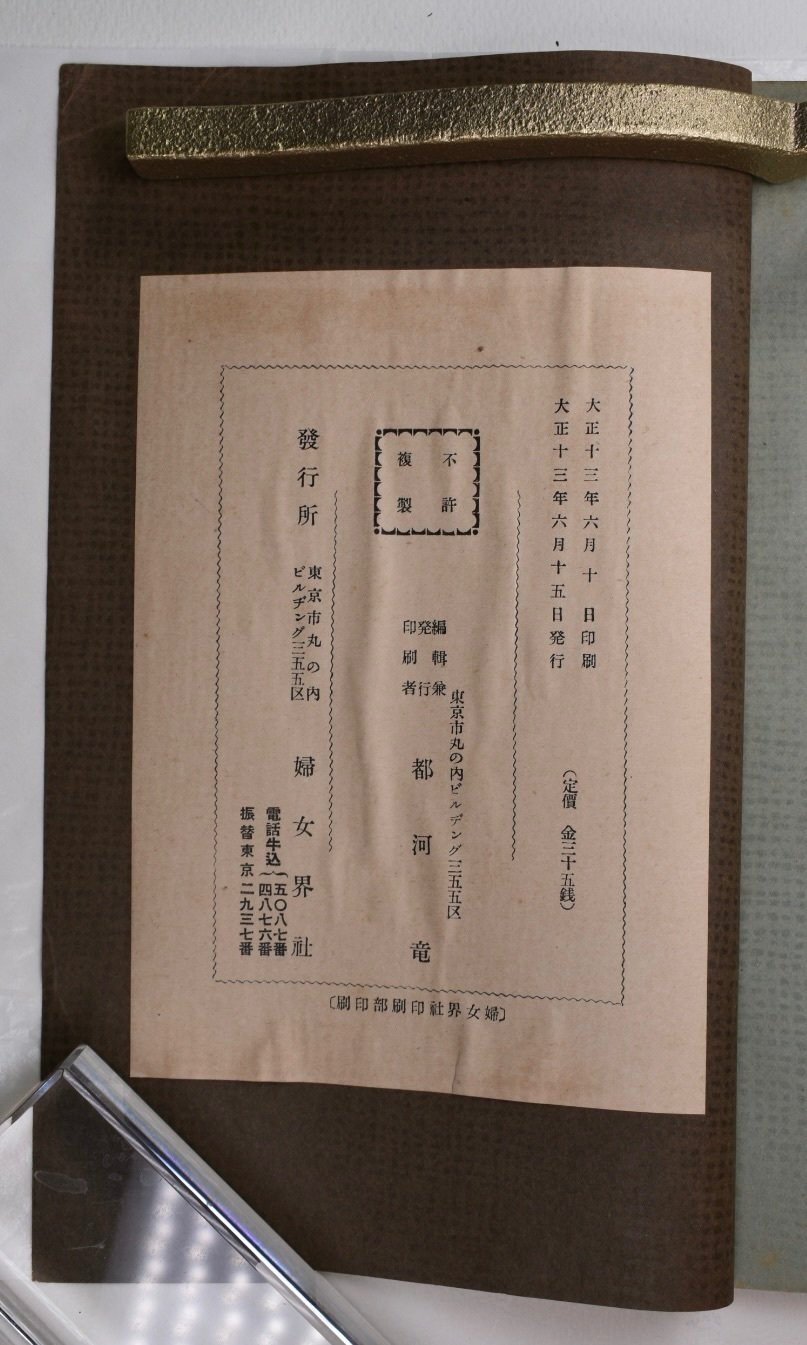 大正十三年六月十日印刷
大正十三年六月十五日発行
(定價 金三十五銭)
不許
複製
東京市丸の内ビルデング三五五区
編輯兼
発行
印刷者
都河竜
發行所
東京市丸の内
ビルヂング三五五区
婦女界社
電話牛込
五〇八七番
四八七六番
振替東京二九三七番
〔婦女界社印刷部印刷〕